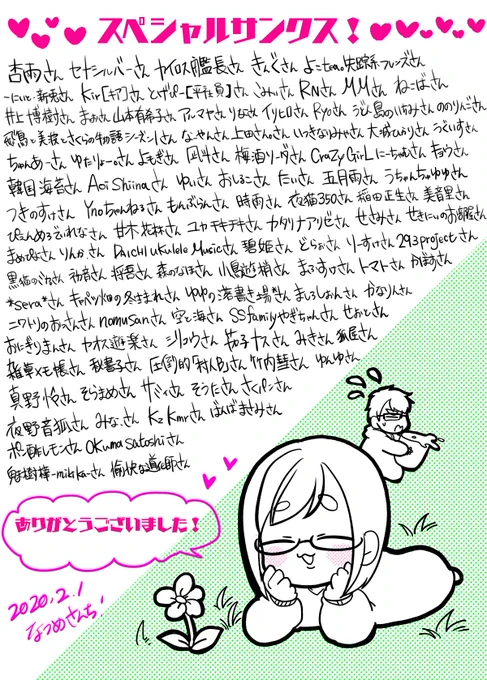 スペシャルサンクス！
杏雨さん セナシルバーさん ヤイロス艦長さん きんぐさん
Kir[キア]さん とげぴー[平社員]さん こみぃさん RNさん MMさん ねこばさん
井上博樹さん まぁさん 山本有希子さん アンマヤさん りなさん イリヒロさん Ryoさん うどん島のいちみさん ののりんごさん
なーやんさん 上田さん 大城ひかりさん うぐいすさん
ちゃんあーさん ゆたりょーさん よもぎさん 凹斗さん 梅酒ソーダさん CraZy GirLにーちゃんさん きょうさん
韓国海苔さん Aoi Shiinaさん ゆいさん おしるこさん たいさん 五月雨さん
つきのすけさん Ynoちゃんねるさん もんぶらんさん 時雨さん 夜猫350さん 稲田正生さん 美音里さん
甘木花林さん ユウキチキチさん カタリナアリゼさん せさみさん
まめぴよさん りんかさん Daichi ukulele Musicさん 碧姫さん どらぉさん りーすけさん 293projectさん
初音さん 将吾さん 森のなほさん 小鳥遊楠さん まぁすけさん トマトさん かぼすさん
*sera*さん キャベツ畑の冬生まれさん ましろしおんさん かなりんさん
ニワトリのおっさんさん nomusanさん 空と海さん SS familyやぎちゃんさん せぉとさん
おにぎりまんさん ヤオス遊楽さん シリウさん 茄子ナスさん みきさん 狐屋さん
雑草メモ帳さん 秋書子さん 圧倒的「村人B」さん 竹内彗さん ゆんゆんさん
真野怜さん そらまめさん サバィさん そうたさん さくパンさん
夜野音狐さん みなこさん Kz Kmrさん はんばまさみさん
ポン酢レモンさん Okuma Satoshiさん
魅樹樺-mikika-さん 愉快な道化師さん
ありがとうございました！
2020.2.1
なつめさんち！